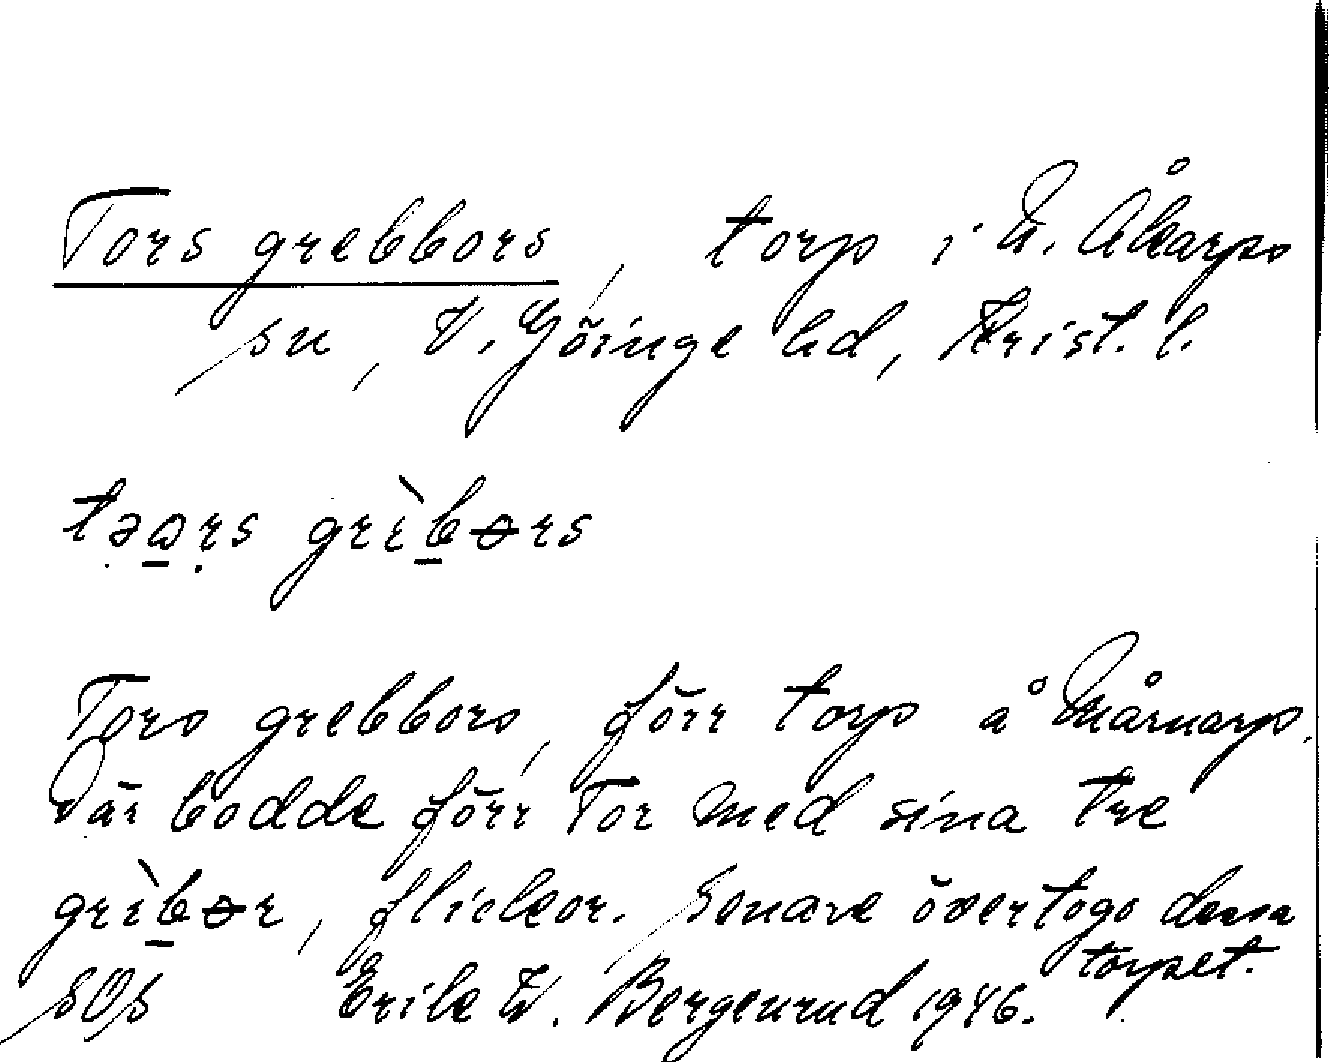 Tors grebbors, torp i N. Åkarps
sn, V. Göinge hd, Krist. l.
təa̱ṛs grìb̲ɵrs
Tors grebbors, förr torp å Mårnarp.
Där bodde förr Tor med sina tre
grìb̲ɵr, flickor. Senare övertogo dessa
torpet.
SOS Erik W. Bergenrud 1946.